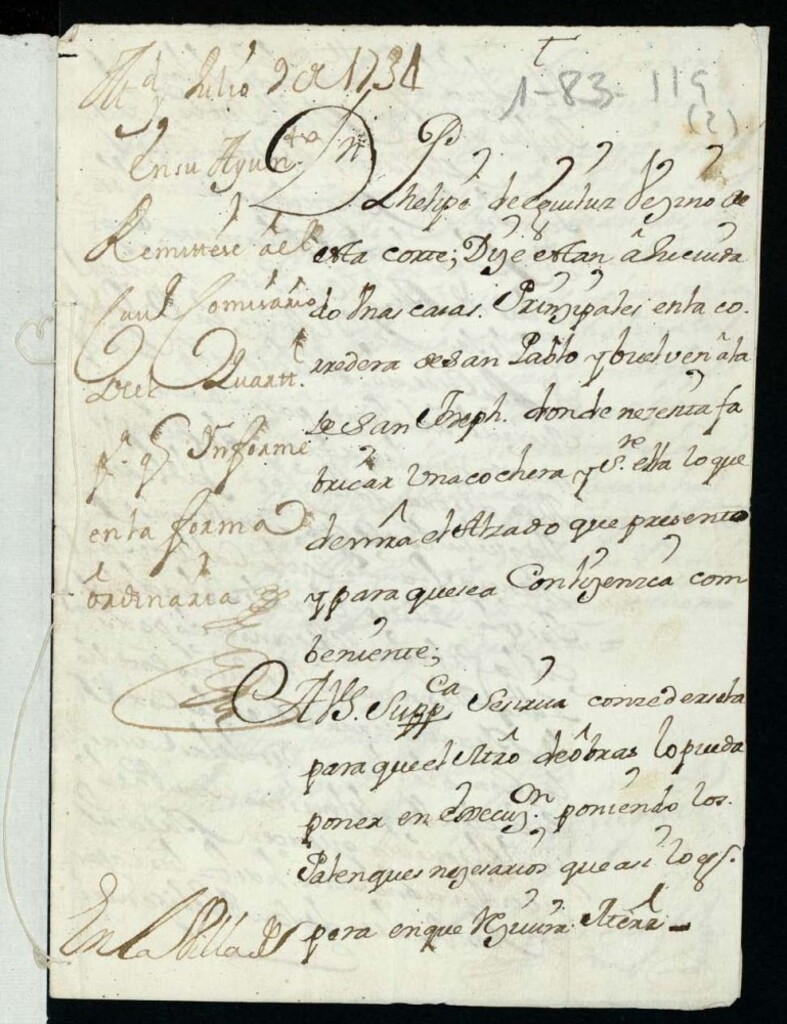 Md y Julio 9 de 1731
1-83-119
(2)
En su Ayunto
Remittese al
Cavo Comisario
del Quartl
pa q Informe
en la forma
ordinaria
Dn Phelipe de vezino de
esta corte; Dize estan â su cuida
do Unas casas Prinzipales en la co
rredera de San Pablo y buelven â la
de San Joseph. donde nezesita fa
bricar Una cochera y sre ella lo que
demra el Alzado que presenta
y para que sea Con lizenzia com
beniente;
A VS. Suppca Se sirva conzedersela
para que el Mro de ôbras lo pueda
poner en ejecuzon poniendo los
Palenques nezesarios que asi lo es
pera en que rezivira Merzd
En la Villa de